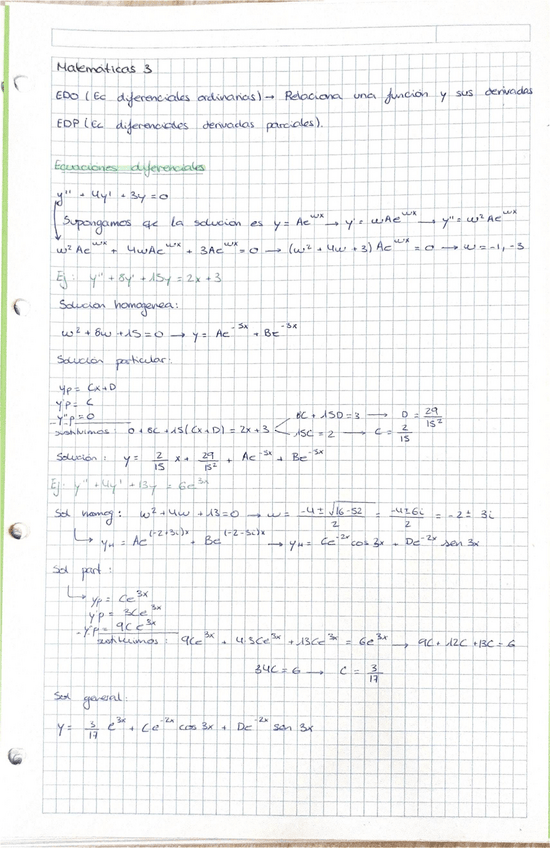 Matemáticas 3
EDO (Ec diferenciales ordinarias) → Relaciona una función y sus derivadas
EDP (Ec diferenciales derivadas parciales).
Ecuaciones diferenciales
y'' + 4y' + 3y = 0
Supongamos qe la solución es y = Ae^{wx} → y' = wAe^{wx} → y'' = w²Ae^{wx}
w²Ae^{wx} + 4wAe^{wx} + 3Ae^{wx} = 0 → (w² + 4w + 3) Ae^{wx} = 0 → w = -1, -3
Ej: y'' + 8y' + 15y = 2x + 3
Solución homogenea:
w² + 8w + 15 = 0 → y = Ae^{-3x} + Be^{-5x}
Solución particular:
yp = Cx + D
y'p = C
y''p = 0
sustituimos: 0 + 8C + 15(Cx + D) = 2x + 3
8C + 15D = 3 → D = 29/15²
15C = 2 → C = 2/15
Solución: y = 2/15 x + 29/15² + Ae^{-3x} + Be^{-5x}
Ej: y'' + 4y' + 13y = 6e^{3x}
Sol homog: w² + 4w + 13 = 0 → w = (-4 ± √16-52)/2 = (-4 ± 6i)/2 = -2 ± 3i
y_H = Ae^{(-2+3i)x} + Be^{(-2-3i)x} → y_H = Ce^{-2x} cos 3x + De^{-2x} sen 3x
Sol part:
yp = Ce^{3x}
y'p = 3Ce^{3x}
y''p = 9Ce^{3x}
sustituimos: 9Ce^{3x} + 4·3Ce^{3x} + 13Ce^{3x} = 6e^{3x} → 9C + 12C + 13C = 6
34C = 6 → C = 3/17
Sol general:
y = 3/17 e^{3x} + Ce^{-2x} cos 3x + De^{-2x} sen 3x